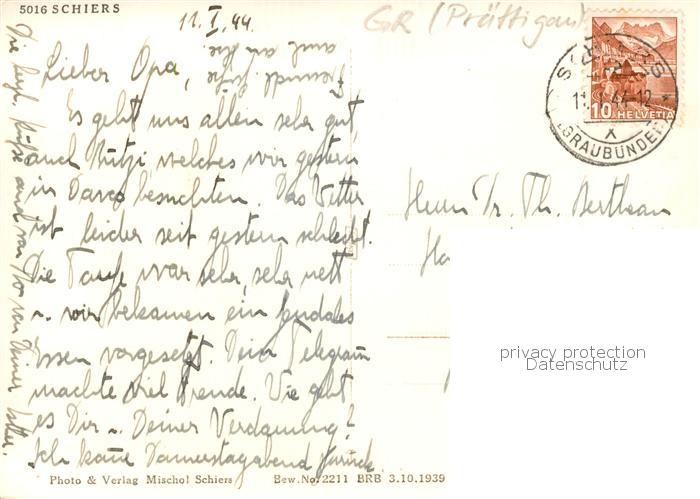 5016 SCHIERS
11. I. 44.
GR (Prättigau)
Lieber Opa,
Es geht uns allen sehr gut,
auch Mutzi welches wir gestern
in Davos besuchten. Das Wetter
ist leider seit gestern schlecht.
Die Taufe war sehr, sehr nett
~ wir bekamen ein
Essen vorgesetzt. Dein Telegramm
machte viel Freude. Wie geht
es Dir ~ Deiner Verdauung?
Ich komme Donnerstagabend zurück
auch an die
Die herzl. Küsse auch von von Deiner
SCHIERS
11. I. 44-12
(GRAUBÜNDEN)
X
10 HELVETIA
Herrn Dr. Th.
privacy protection
Datenschutz
Photo & Verlag Mischol Schiers Bew. No. 2211 BRB 3.10.1939